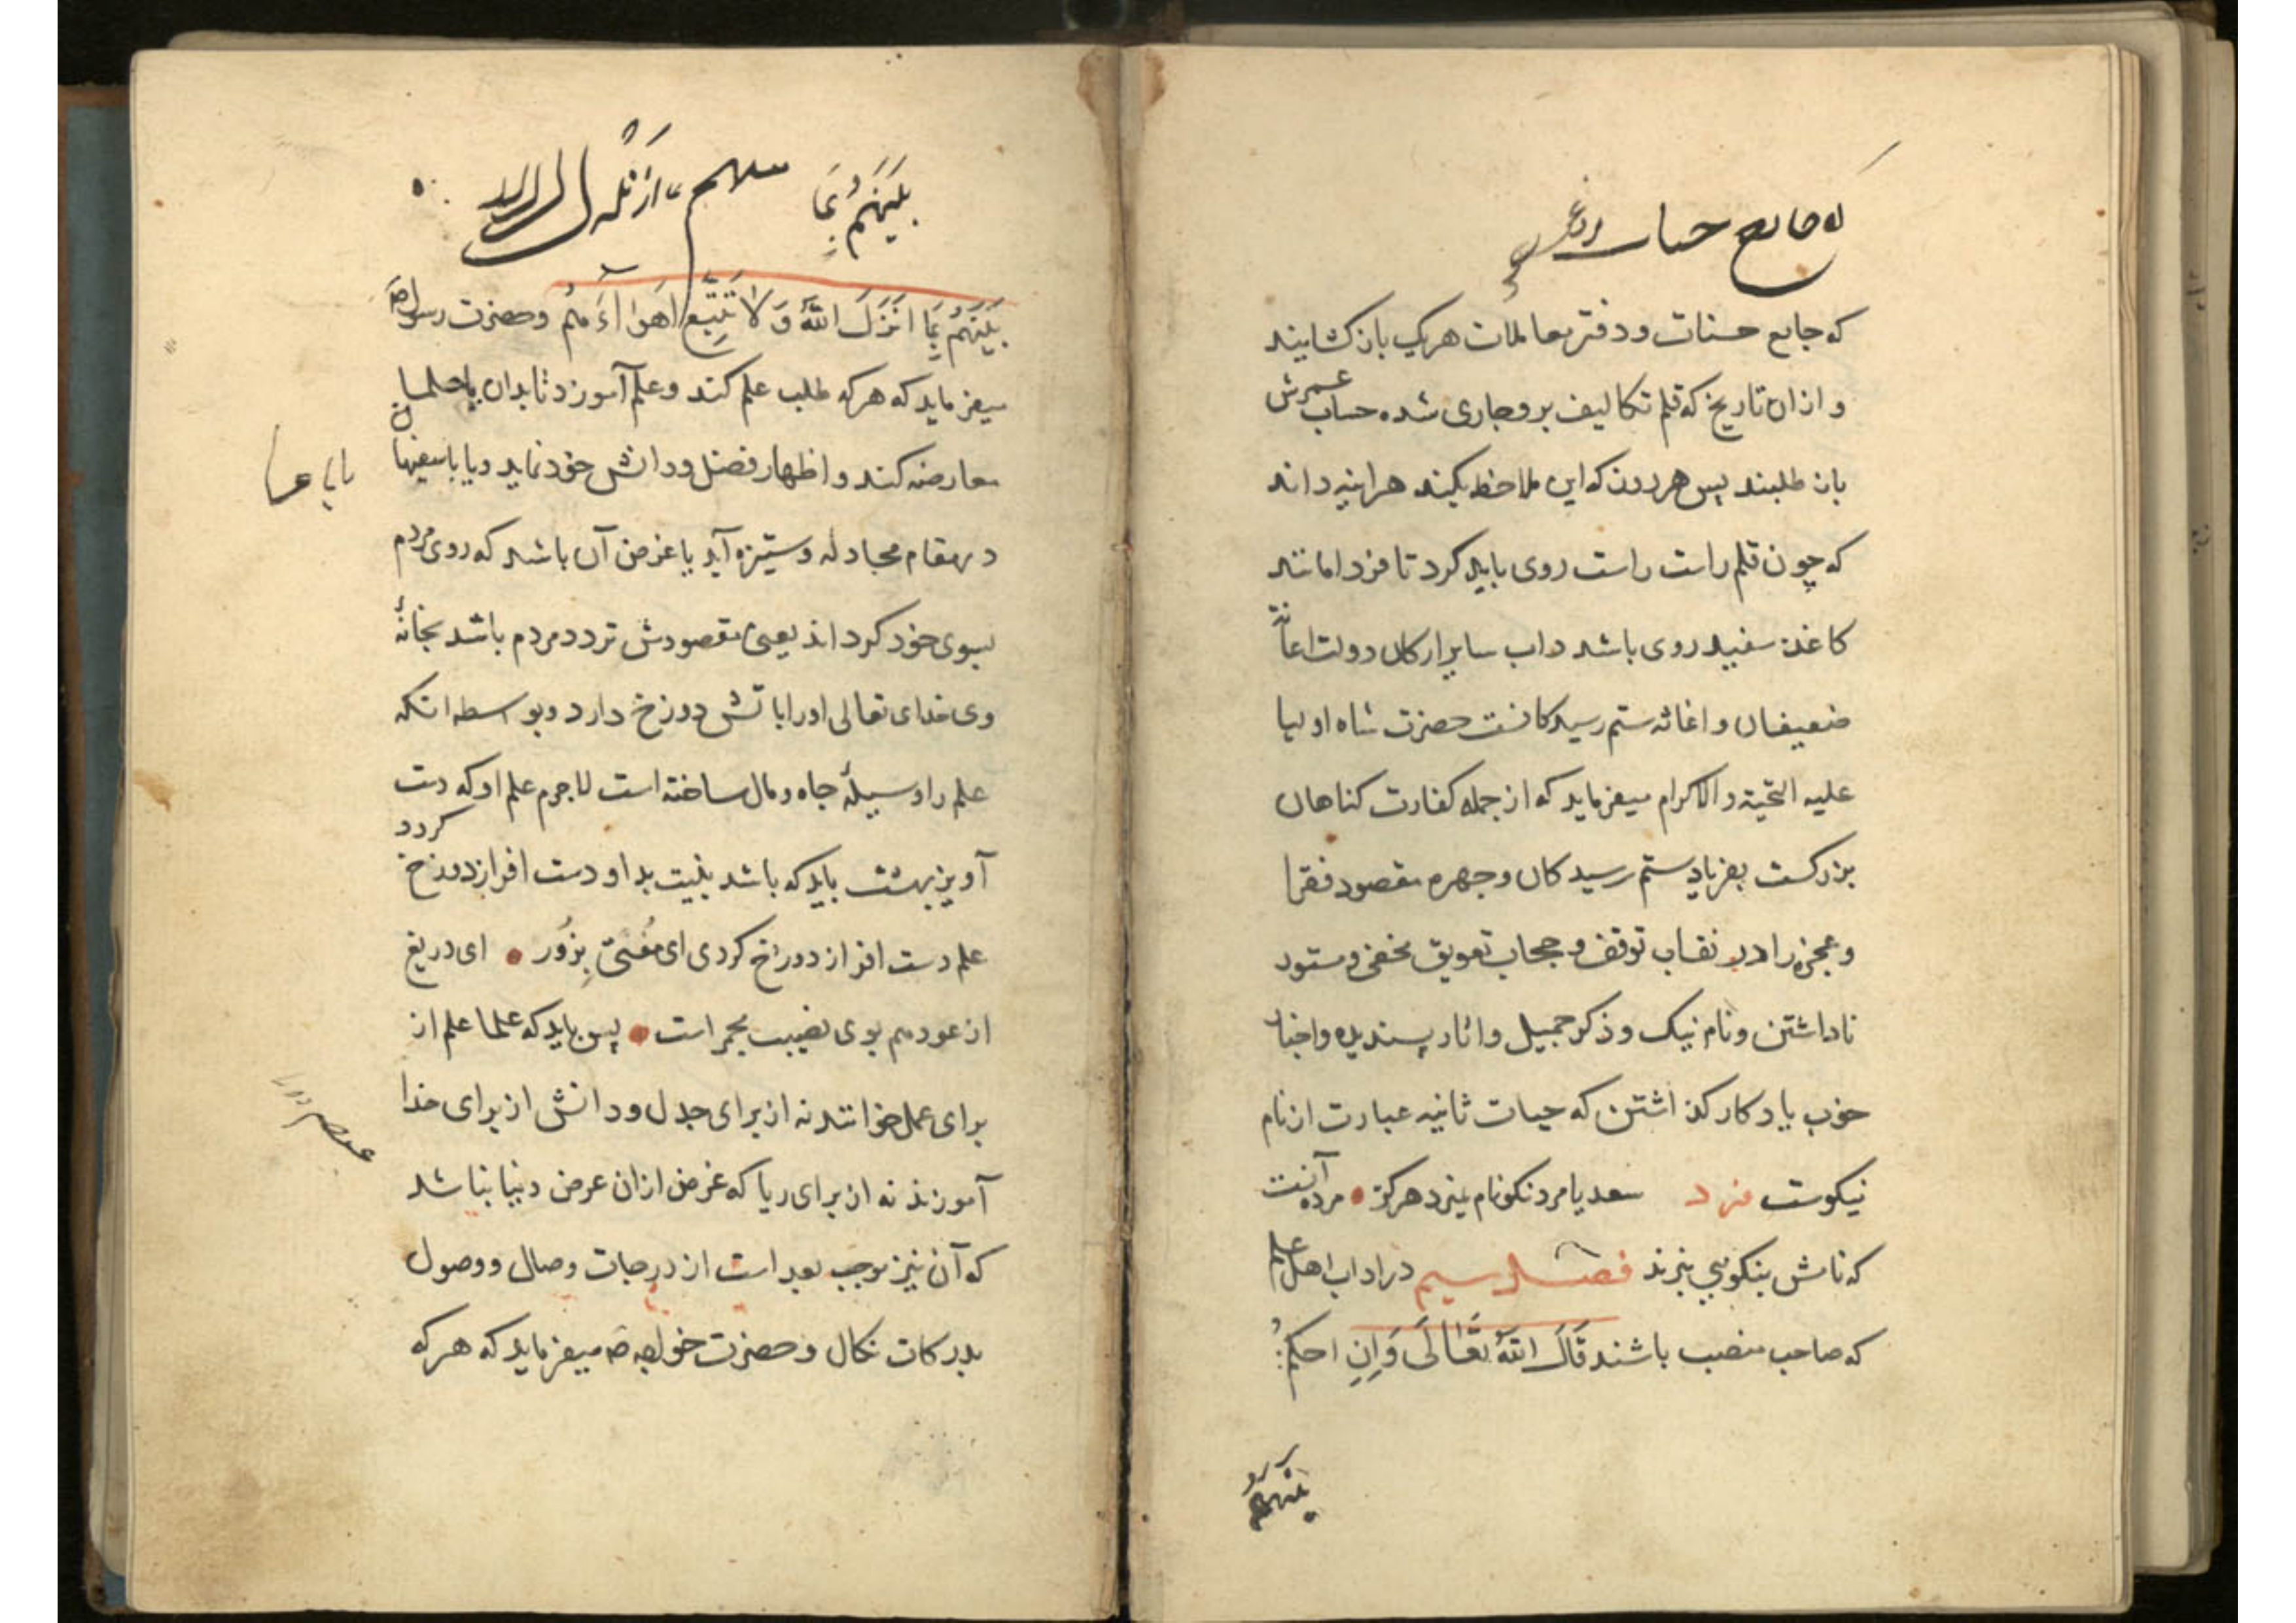 که جامع حسنات و دفتر
که جامع حسنات و دفتر معاملات هریک بازکشایند
و ازان تاریخ که قلم تکالیف برو جاری شده حساب عمرش
باز طلبند پس هر روز که این ملاحظه بکیند هراینه داند
که چون قلم راست راست روی باید کرد تا فردا مانند
کاغذ سفید روی باشد داب سایر ارکان دولت اعانه
ضعیفان و اغاثه ستم رسیدکانست حضرت شاه اولیا
علیه التحیة والاکرام میفرماید که از جمله کفارت کناهان
بزرکست بفریاد ستم رسیدکان و چهره مقصود فقرا
و عجزه را در نقاب توقف و حجاب تعویق مخفی و مستور
ناداشتن و نام نیک و ذکر جمیل و اثار پسندیده و اخبار
خوب یادکار کذاشتن که حیات ثانیه عبارت از نام
نیکوست فرد سعدیا مرد نکونام نمیرد هرکز • مرده آنست
که نامش بنکویی نبرند فصل سیم در اداب اهل علم
که صاحب منصب باشند قَالَ اللّٰهُ تَعَالَى وَاَنِ احکُمْ
بَیْنَهُمْ
بَیْنَهُمْ بِمَا
بَیْنَهُمْ بِمَا اَنْزَلَ اللّٰهُ وَلَا تَتَّبِعْ اَهْوَاۤءَهُمْ و حضرت رسول صه
میفرماید که هرکه طلب علم کند و علم آموزد تا بدان با علمان
معارضه کند و اظهار فضل و دانش خود نماید و یا با سفیها
در مقام مجادله و ستیزه آید یا غرض آن باشد که روی مردم
بسوی خود کرداند یعنی مقصودش تردد مردم باشد بخانهٔ
وی خدای تعالی اورا باتش دوزخ دارد و بواسطه انکه
علم را وسیلهٔ جاه و مال ساخته است لاجرم علم او که دست
آویز بهشت باید که باشد بنیت بد او دست افراز دوزخ کردد
علم دست افراز دوزخ کردی ای مُفتیِّ بزُور • ای دریغ
از عودهم بوی نصیب مجمر است • پس باید که علما علم از
برای عمل خوانند نه از برای جدل و دانش از برای خدا
آموزند نه از برای ریا که غرض ازان عرض دنیا بناشد
که آن نیز موجب بعد است از درجات وصال و وصول
بدرکات نکال و حضرت خواجه صه میفرماید که هرکه